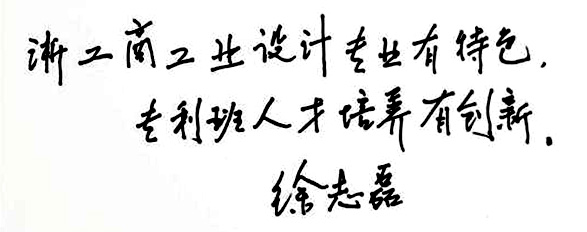 浙工商工业设计专业有特色.
专利班人才培养有创新.
徐志磊